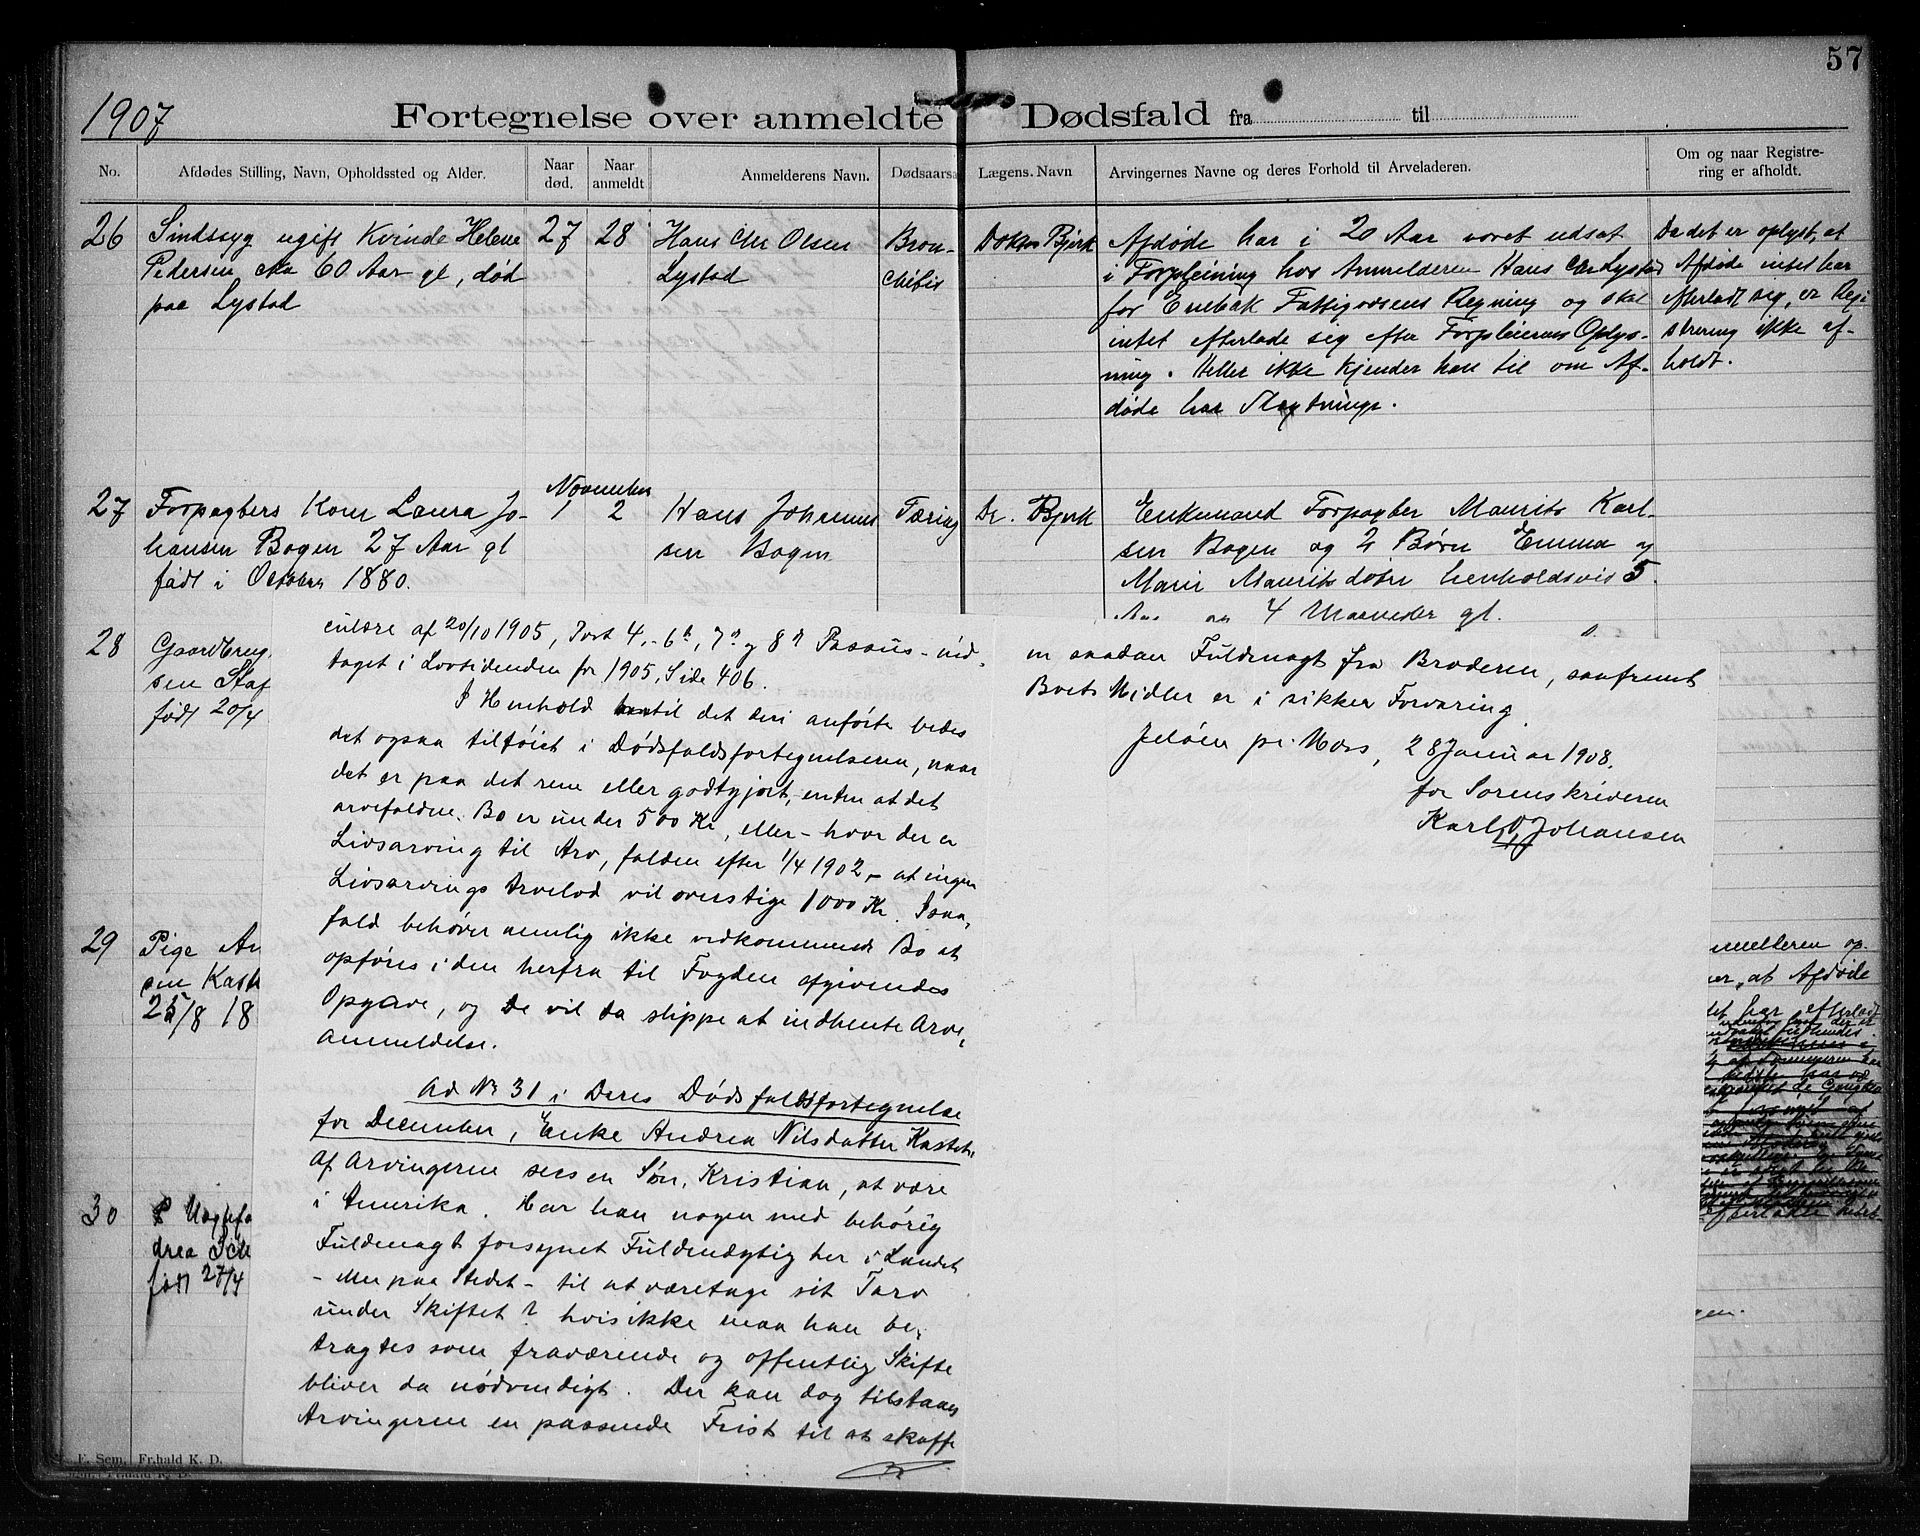 57
1907
Fortegnelse over anmeldte Dødsfald fra til
No.
Afdødes Stilling, Navn, Opholdssted og Alder.
Naar død.
Naar anmeldt
Anmelderens Navn.
Dødsaarsa
Lægens. Navn
Arvingernes Navne og deres Forhold til Arveladeren.
Om og naar Registre-
ring er afholdt.
26
Sindssyg ugift Kvinde Helene
Pedersen cka 60 Aar gl, død
paa Lystad
27
28
Hans Chr Olsen
Lystad
Bron-
chitis
Doktor Bjerk
Afdøde har i 20 Aar været udsat
i Forpleining hos Anmelderen Hans Chr Lystad
for Enebak Fattigvæsens Regning og skal
intet efterlade sig efter Forpleierens Oplys-
ning. Heller ikke kjender han til om Af-
døde har Slegtninge.
Da det er oplyst, at
Afdøde intet har
efterladt sig, er Regi
strering ikke af-
holdt.
27
Forpagters Kone Laura Jo-
hansen Bogen 27 Aar gl
født i October 1880.
November
1
2
Hans Johannes
sen Bogen
Tæring
Dr. Bjerk
Enkemand Forpagter Maurits Karl-
sen Bogen og 2 Børn Emma og
Marie Mauritsdotre henholdsvis 5
Aar og 4 Maaneder gl.
28
Gaardbrug.
sen Staf
født 20/4
29
Pige An
sen Kast
25/8 18
30
født 27/4
culære af 20/10 1905, Post 4, - 6te, 7de og 8de Passus - ind-
taget i Lovtidenden for 1905, Side 406.
I Henhold til det deri anførte bedes
det ogsaa tilføiet i Dødsfaldsfortegnelserne, naar
det er paa det rene eller godtgjort, enten at det
arvefaldne Bo er under 500 Kr, eller - hvor der er
Livsarving til Arv, falden efter 1/4 1902, - at ingen
Livsarvings Arvelod vil overstige 1000 Kr. I saa-
fald behøver nemlig ikke vedkommende Bo at
opføres i den herfra til Fogden afgivendes
Opgave, og De vil da slippe at indhente Arve-
anmeldelse.
Ad No 31 i Deres Dødsfaldsfortegnelse
for December, Enke Andrea Nilsdatter Kastet.
Af Arvingerne sees en Søn, Kristian, at være
i Amerika. Har han nogen med behørig
Fuldmagt forsynet Fuldmægtig her i Landet
- eller paa Stedet - til at varetage sit Tarv
under Skiftet? hvis ikke maa han be-
tragtes som fraværende og offentlig Skifte
bliver da nødvendigt. Der kan dog tilstaaes
Arvingerne en passende Frist til at skaffe
en saadan Fuldmagt fra Broderen, saafremt
Boets Midler er i sikker Forvaring.
Jeløen pr. Moss, 28 Januar 1908.
for Sorenskriveren
Karl Johansen
nmelderen op-
ser, at Afdøde
tet har efterladt
F. Sem, Fr.hald K. D.